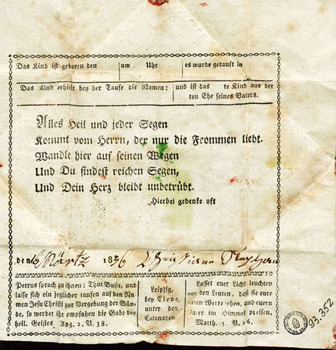 Das Kind ist geboren den um Uhr es wurde getauft in
Das Kind erhielt bey der Taufe die Namen: und ist das te Kind aus der
ten Ehe seines Vaters.
Alles Heil und jeder Segen
Kommt vom Herrn, der nur die Frommen liebt.
Wandle hier auf seinen Wegen
Und Du findest reichen Segen,
Und Dein Herz bleibt unbetrübt.
Hierbei gedenke oft
den 6 März 1836
Petrus sprach zu ihnen: Thut Buße, und
lasse sich ein jeglicher taufen auf den Na-
men Jesu Christi zur Vergebung der Sün-
de, so werdet ihr empfahen die Gabe des
heil. Geistes. Apg. 2, V. 38.
Leipzig,
bey Cleve,
unter den
Colonaden
Lasset euer Licht leuchten
vor den Leuten, daß sie eure
guten Werke sehen, und euern
Vater im Himmel preisen.
Matth. 5 V. 16.
93.352